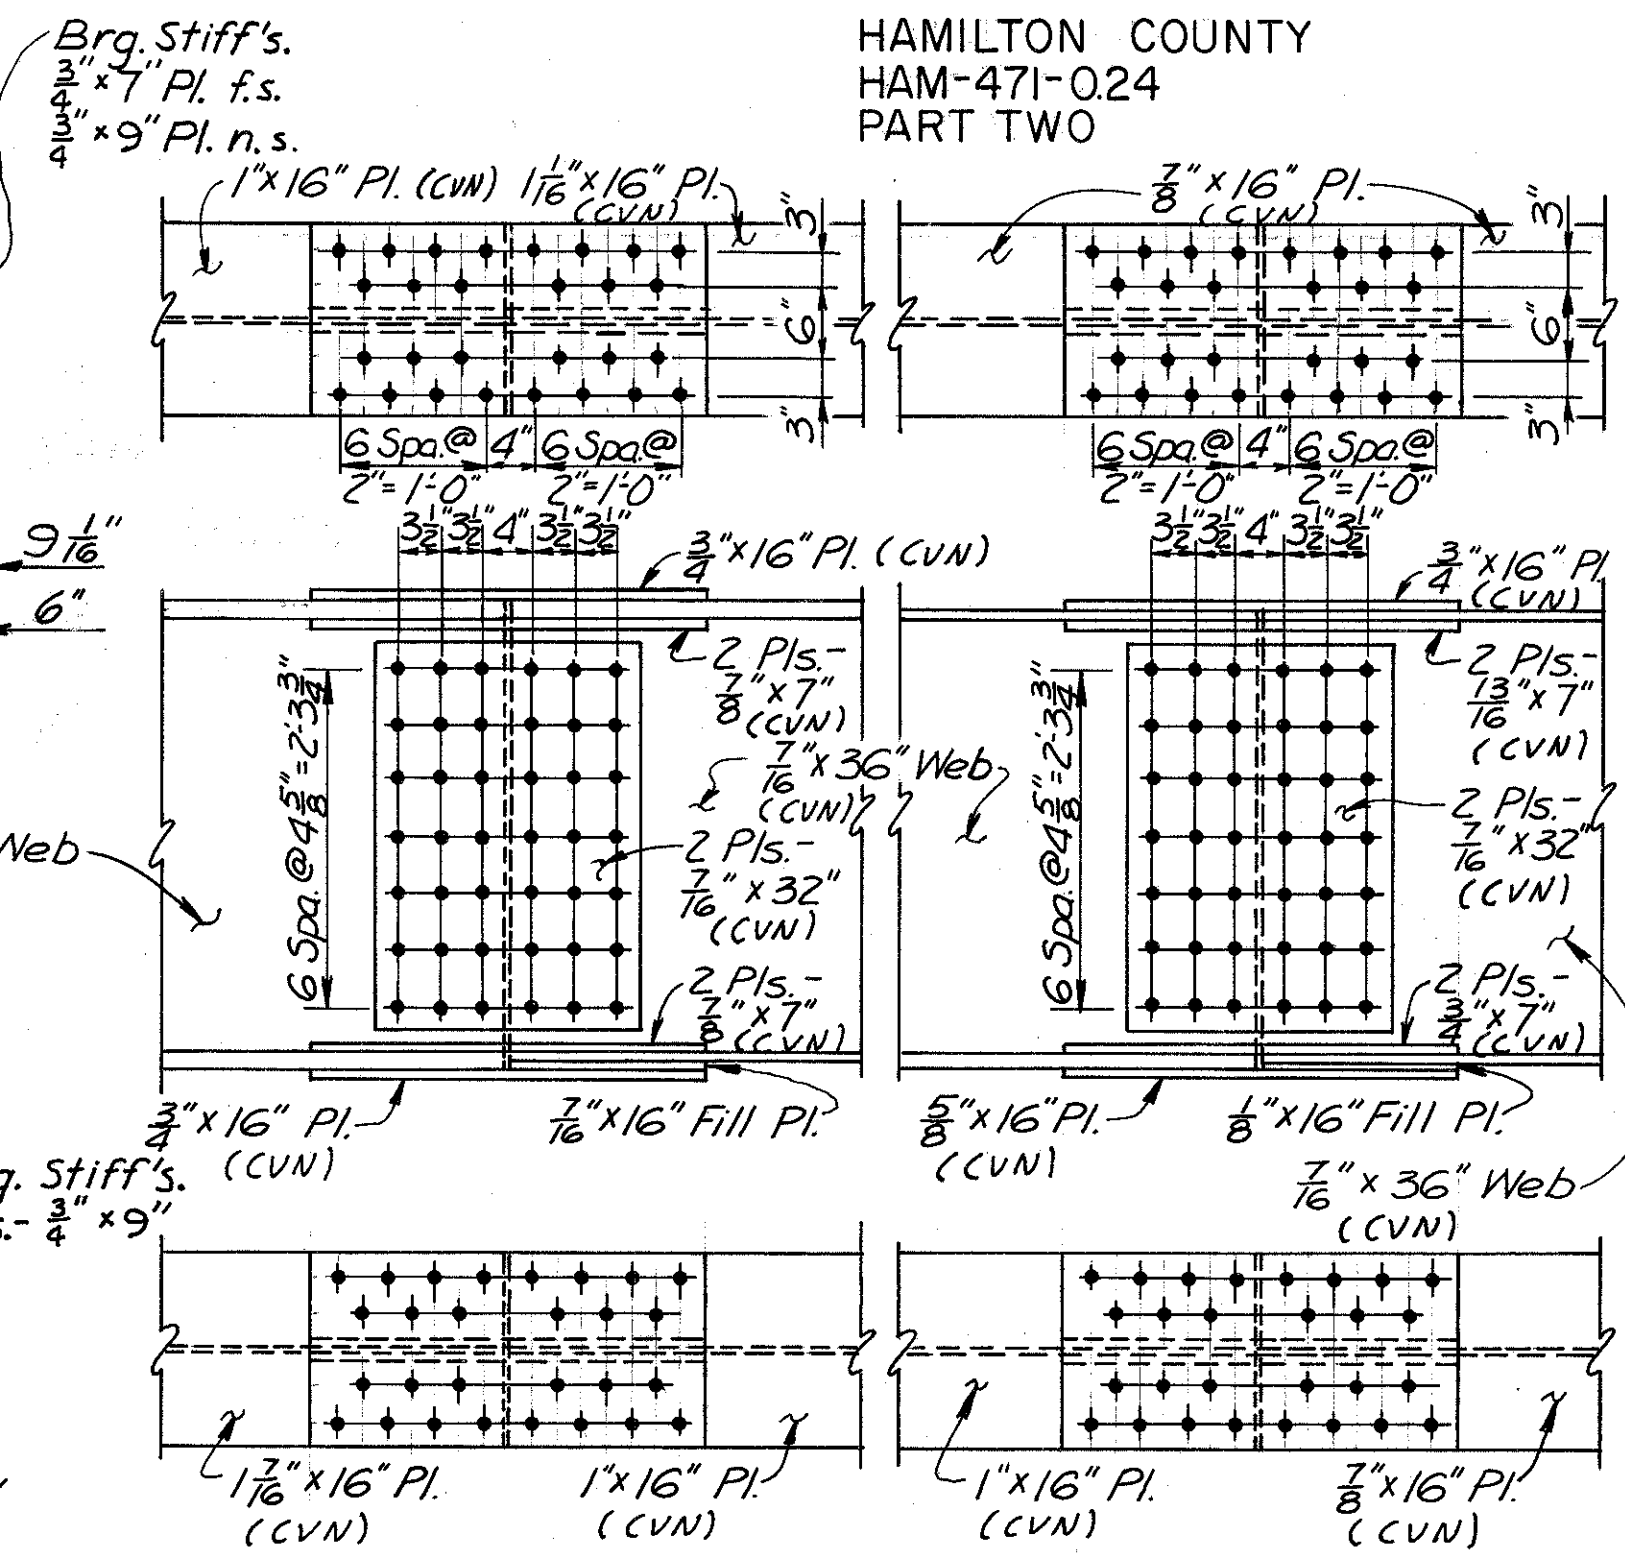 Brg. Stiff's.
3/4" x 7" Pl. f.s.
3/4" x 9" Pl. n.s.
HAMILTON COUNTY
HAM-471-0.24
PART TWO
1" x 16" Pl. (CVN)
1 1/16" x 16" Pl.
(CVN)
3"
6"
3"
6 Spa. @ 4" 6 Spa. @
2" = 1'-0" 2" = 1'-0"
7/8" x 16" Pl.
(CVN)
3"
6"
3"
6 Spa. @ 4" 6 Spa. @
2" = 1'-0" 2" = 1'-0"
9 1/16"
6"
3 1/2" 3 1/2" 4" 3 1/2" 3 1/2"
3/4" x 16" Pl. (CVN)
2 Pls.-
7/8" x 7"
(CVN)
6 Spa. @ 4 5/8" = 2'-3 3/4"
7/16" x 36" Web
(CVN)
2 Pls.-
7/16" x 32"
(CVN)
2 Pls.-
7/8" x 7"
(CVN)
Web
3/4" x 16" Pl.
(CVN)
7/16" x 16" Fill Pl.
3 1/2" 3 1/2" 4" 3 1/2" 3 1/2"
3/4" x 16" Pl
(CVN)
2 Pls.-
13/16" x 7"
(CVN)
6 Spa. @ 4 5/8" = 2'-3 3/4"
2 Pls.-
7/16" x 32"
(CVN)
2 Pls.-
3/4" x 7"
(CVN)
5/8" x 16" Pl.
(CVN)
1/8" x 16" Fill Pl.
7/16" x 36" Web
(CVN)
g. Stiff's.
s.- 3/4" x 9"
1 7/16" x 16" Pl.
(CVN)
1" x 16" Pl.
(CVN)
1" x 16" Pl.
(CVN)
7/8" x 16" Pl.
(CVN)